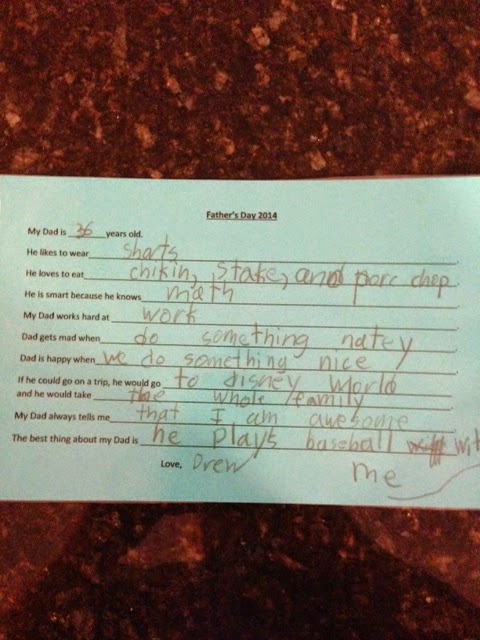 Father's Day 2014
My Dad is 36 years old.
He likes to wear shorts.
He loves to eat chikin, stake, and porc chop.
He is smart because he knows math.
My Dad works hard at work.
Dad gets mad when do something natey.
Dad is happy when we do something nice.
If he could go on a trip, he would go to disney world
and he would take the whole family.
My Dad always tells me that I am awesome.
The best thing about my Dad is he plays baseball wit
me
Love, Drew